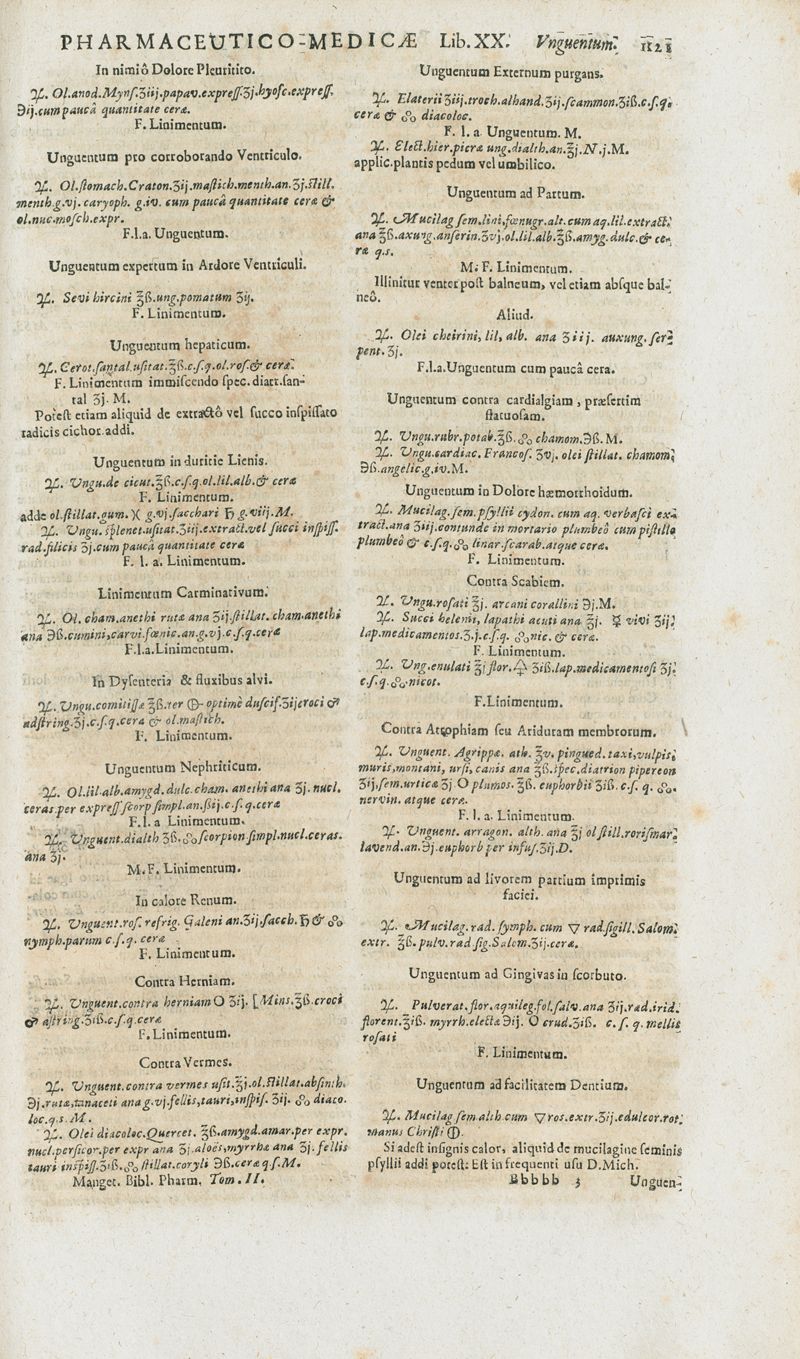 PHARMACEUTICO-MEDICÆ Lib. XX. Vnguentum. 1121
In nimiô Dolore Pleuritico.
℞. Ol.anod.Mynſ.ʒiij.papav.expreſſ.ʒj.hyoſc.expreſſ.
℈ij.cum paucâ quantitate ceræ.
F. Linimentum.
Unguentum pro corroborando Ventriculo.
℞. Ol.ſtomach.Craton.ʒij.maſtich.menth.an.ʒj.ſtill.
menth.g.vj. caryoph. g.iv. cum paucâ quantitate ceræ &
ol.nuc.moſch.expr.
F.l.a. Unguentum.
Unguentum expertum in Ardore Ventriculi.
℞. Sevi hircini ℥ß.ung.pomatum ʒij.
F. Linimentum.
Unguentum hepaticum.
℞. Cerot.ſantal.uſitat.℥ß.c.ſ.q.ol.roſ.& ceræ.
F. Linimentum immiſcendo ſpec. diatr.ſan-
tal ʒj. M.
Poteſt etiam aliquid de extractô vel ſucco inſpiſſato
radicis cichor.addi.
Unguentum in duritie Lienis.
℞. Ungu.de cicut.℥ß.c.ſ.q.ol.lil.alb.& ceræ
F. Linimentum.
adde ol.ſtillat.gum. )( g.vj ſacchari ♄ g.viij.M.
℞. Ungu. ſplenet.uſitat.ʒiij.extract.vel ſucci inſpiſſ.
rad.filicis ʒj.cum paucâ quantitate ceræ
F. l. a. Linimentum.
Linimentum Carminativum.
℞. Ol. cham.anethi rutæ ana ʒij.ſtillat. cham.anethi
ana ℈ß.cumini,carvi.fœnic.an.g.vj.c.ſ.q.ceræ
F.l.a.Linimentum.
In Dyſenteria & fluxibus alvi.
℞. Ungu.comitiſſæ ℥ß.ter optimè dulciſ.ʒij croci ♂
adſtring.ʒj.c.ſ.q.ceræ & ol.maſtich.
F. Linimentum.
Unguentum Nephriticum.
℞. Ol.lil.alb.amygd. dulc. cham. anethi ana ʒj. nucl.
ceras.per expreſſ ſcorp ſimpl.an.ßij.c.ſ.q.ceræ
F.l.a Linimentum.
℞. Unguent.dialth ʒß. ꝏ ſcorpion.ſimpl.nucl.ceras.
ana ʒj.
M.F. Linimentum.
In calore Renum.
℞. Unguent.roſ. refrig. Galeni an.ʒij.ſacch. ♄ & ꝏ
nymph.parum c.ſ.q. ceræ
F. Linimentum.
Contra Herniam.
℞. Unguent.contra herniam O ʒij. [Mins.℥ß.croci
♂ aſtring.ʒiß.c.ſ.q.ceræ
F.Linimentum.
Contra Vermes.
℞. Unguent.contra vermes uſit.℥j.ol.ſtillat.abſinth.
℈j.rutæ,tanaceti ana g.vj.fellis,tauri,inſpiſ. ʒij. ꝏ diaco.
loc.q.s. M.
℞. Olei diacoloc.Quercet. ℥ß.amygd.amar.per expr.
nucl.perſicor.per expr ana ʒj.aloës,myrrhæ ana ʒj.fellis
tauri inſpiſſ.ʒiß. ꝏ ſtillat.coryli ℈ß.ceræ q.ſ.M.
Manget. Bibl. Pharm. Tom. II.
Unguentum Externum purgans.
℞. Elaterii ʒiij.troch.alhand.ʒij.ſcammon.ʒiß.c.ſ.q.
ceræ & ꝏ diacoloc.
F. l. a Unguentum. M.
℞. Elect.hier.picræ ung.dialth.an.℥j.N.j.M.
applic.plantis pedum vel umbilico.
Unguentum ad Partum.
℞. Mucilag ſem.lini,fœnugr.alt.cum aq.lil.extract.
ana ℥ß.axung.anſerin.ʒvj.ol.lil.alb.℥ß.amyg.dulc.& ce-
ræ q.s.
M. F. Linimentum.
Illinitur venter poſt balneum, vel etiam abſque bal-
neô.
Aliud.
℞. Olei cheirini, lil, alb. ana ʒiij. auxung. ſer-
pent. ʒj.
F.l.a.Unguentum cum paucâ cera.
Unguentum contra cardialgiam, præſertim
flatuoſam.
℞. Ungu.rubr.potab.℥ß. ꝏ chamom.℈ß. M.
℞. Ungu.cardiac. Francoſ. ʒvj. olei ſtillat. chamom.
℈ß.angelic.g.iv.M.
Unguentum in Dolore hæmorrhoidum.
℞. Mucilag.ſem.pſyllii cydon. cum aq. verbaſci ex-
tract.ana ʒiij.contunde in mortario plumbeô cum piſtillo
plumbeô & c.ſ.q. ꝏ linar.ſcarab.atque ceræ.
F. Linimentum.
Contra Scabiem.
℞. Ungu.roſati ℥j. arcani corallini ℈j.M.
℞. Succi helenii, lapathi acuti ana ℥j. ☿ vivi ʒij.
lap.medicamentos.ʒ.j.c.ſ.q. ꝏ nic. & ceræ.
F. Linimentum.
℞. Ung.enulati ℥j flor. 🜍 ʒiß.lap.medicamentoſi ʒj.
c.ſ.q. ꝏ nicot.
F.Linimentum.
Contra Atrophiam ſeu Ariduram membrorum.
℞. Unguent. Agrippæ. alth. ℥v. pingued. taxi,vulpis,
muris,montani, urſi, canis ana ℥ß.ſpec.diatrion pipereon
ʒij,ſem.urticæ ʒj O plumos. ℥ß. euphorbii ʒiß. c. ſ. q. ꝏ.
nervin. atque ceræ.
F. l. a. Linimentum.
℞. Unguent. arragon. alth. ana ℥j ol ſtill.roriſmar.
lavend.an.℈j.euphorb per infuſ.ʒij.D.
Unguentum ad livorem partium imprimis
faciei.
℞. Mucilag. rad. ſymph. cum ▽ rad.ſigill. Salom.
extr. ℥ß. pulv. rad ſig.Salom.ʒij.ceræ.
Unguentum ad Gingivas in ſcorbuto.
℞. Pulverat.flor.aquileg.fol.ſalv.ana ʒij.rad.irid.
florent.ʒiß. myrrh.electæ ℈ij. O crud.ʒiß. c. ſ. q. mellis
roſati
F. Linimentum.
Unguentum ad facilitatem Dentium.
℞. Mucilag ſem.alth cum ▽ ros.extr.ʒij.edulcor.rot.
manus Chriſti
Si adeſt inſignis calor, aliquid de mucilagine ſeminis
pſyllii addi poteſt: Eſt in frequenti uſu D.Mich.
Bbbbb 3 Unguen-